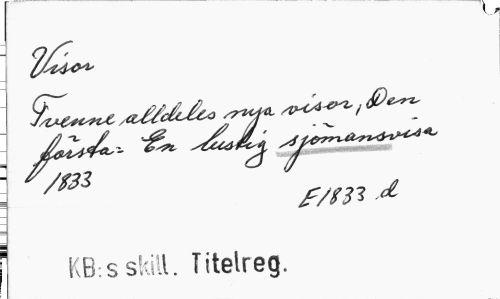 Visor
Tvenne alldeles nya visor, Den
första: En lustig sjömansvisa
1833
E1833 d
KB:s skill. Titelreg.